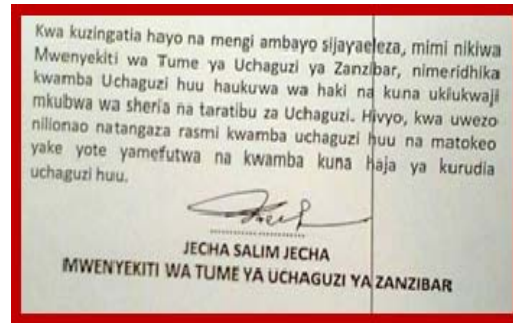 Kwa kuzingatia hayo na mengi ambayo sijayaeleza, mimi nikiwa
Mwenyekiti wa Tume ya Uchaguzi ya Zanzibar, nimeridhika
kwamba Uchaguzi huu haukuwa wa haki na kuna ukiukwaji
mkubwa wa sheria na taratibu za Uchaguzi. Hivyo, kwa uwezo
nilionao natangaza rasmi kwamba uchaguzi huu na matokeo
yake yote yamefutwa na kwamba kuna haja ya kurudia
uchaguzi huu.
JECHA SALIM JECHA
MWENYEKITI WA TUME YA UCHAGUZI YA ZANZIBAR